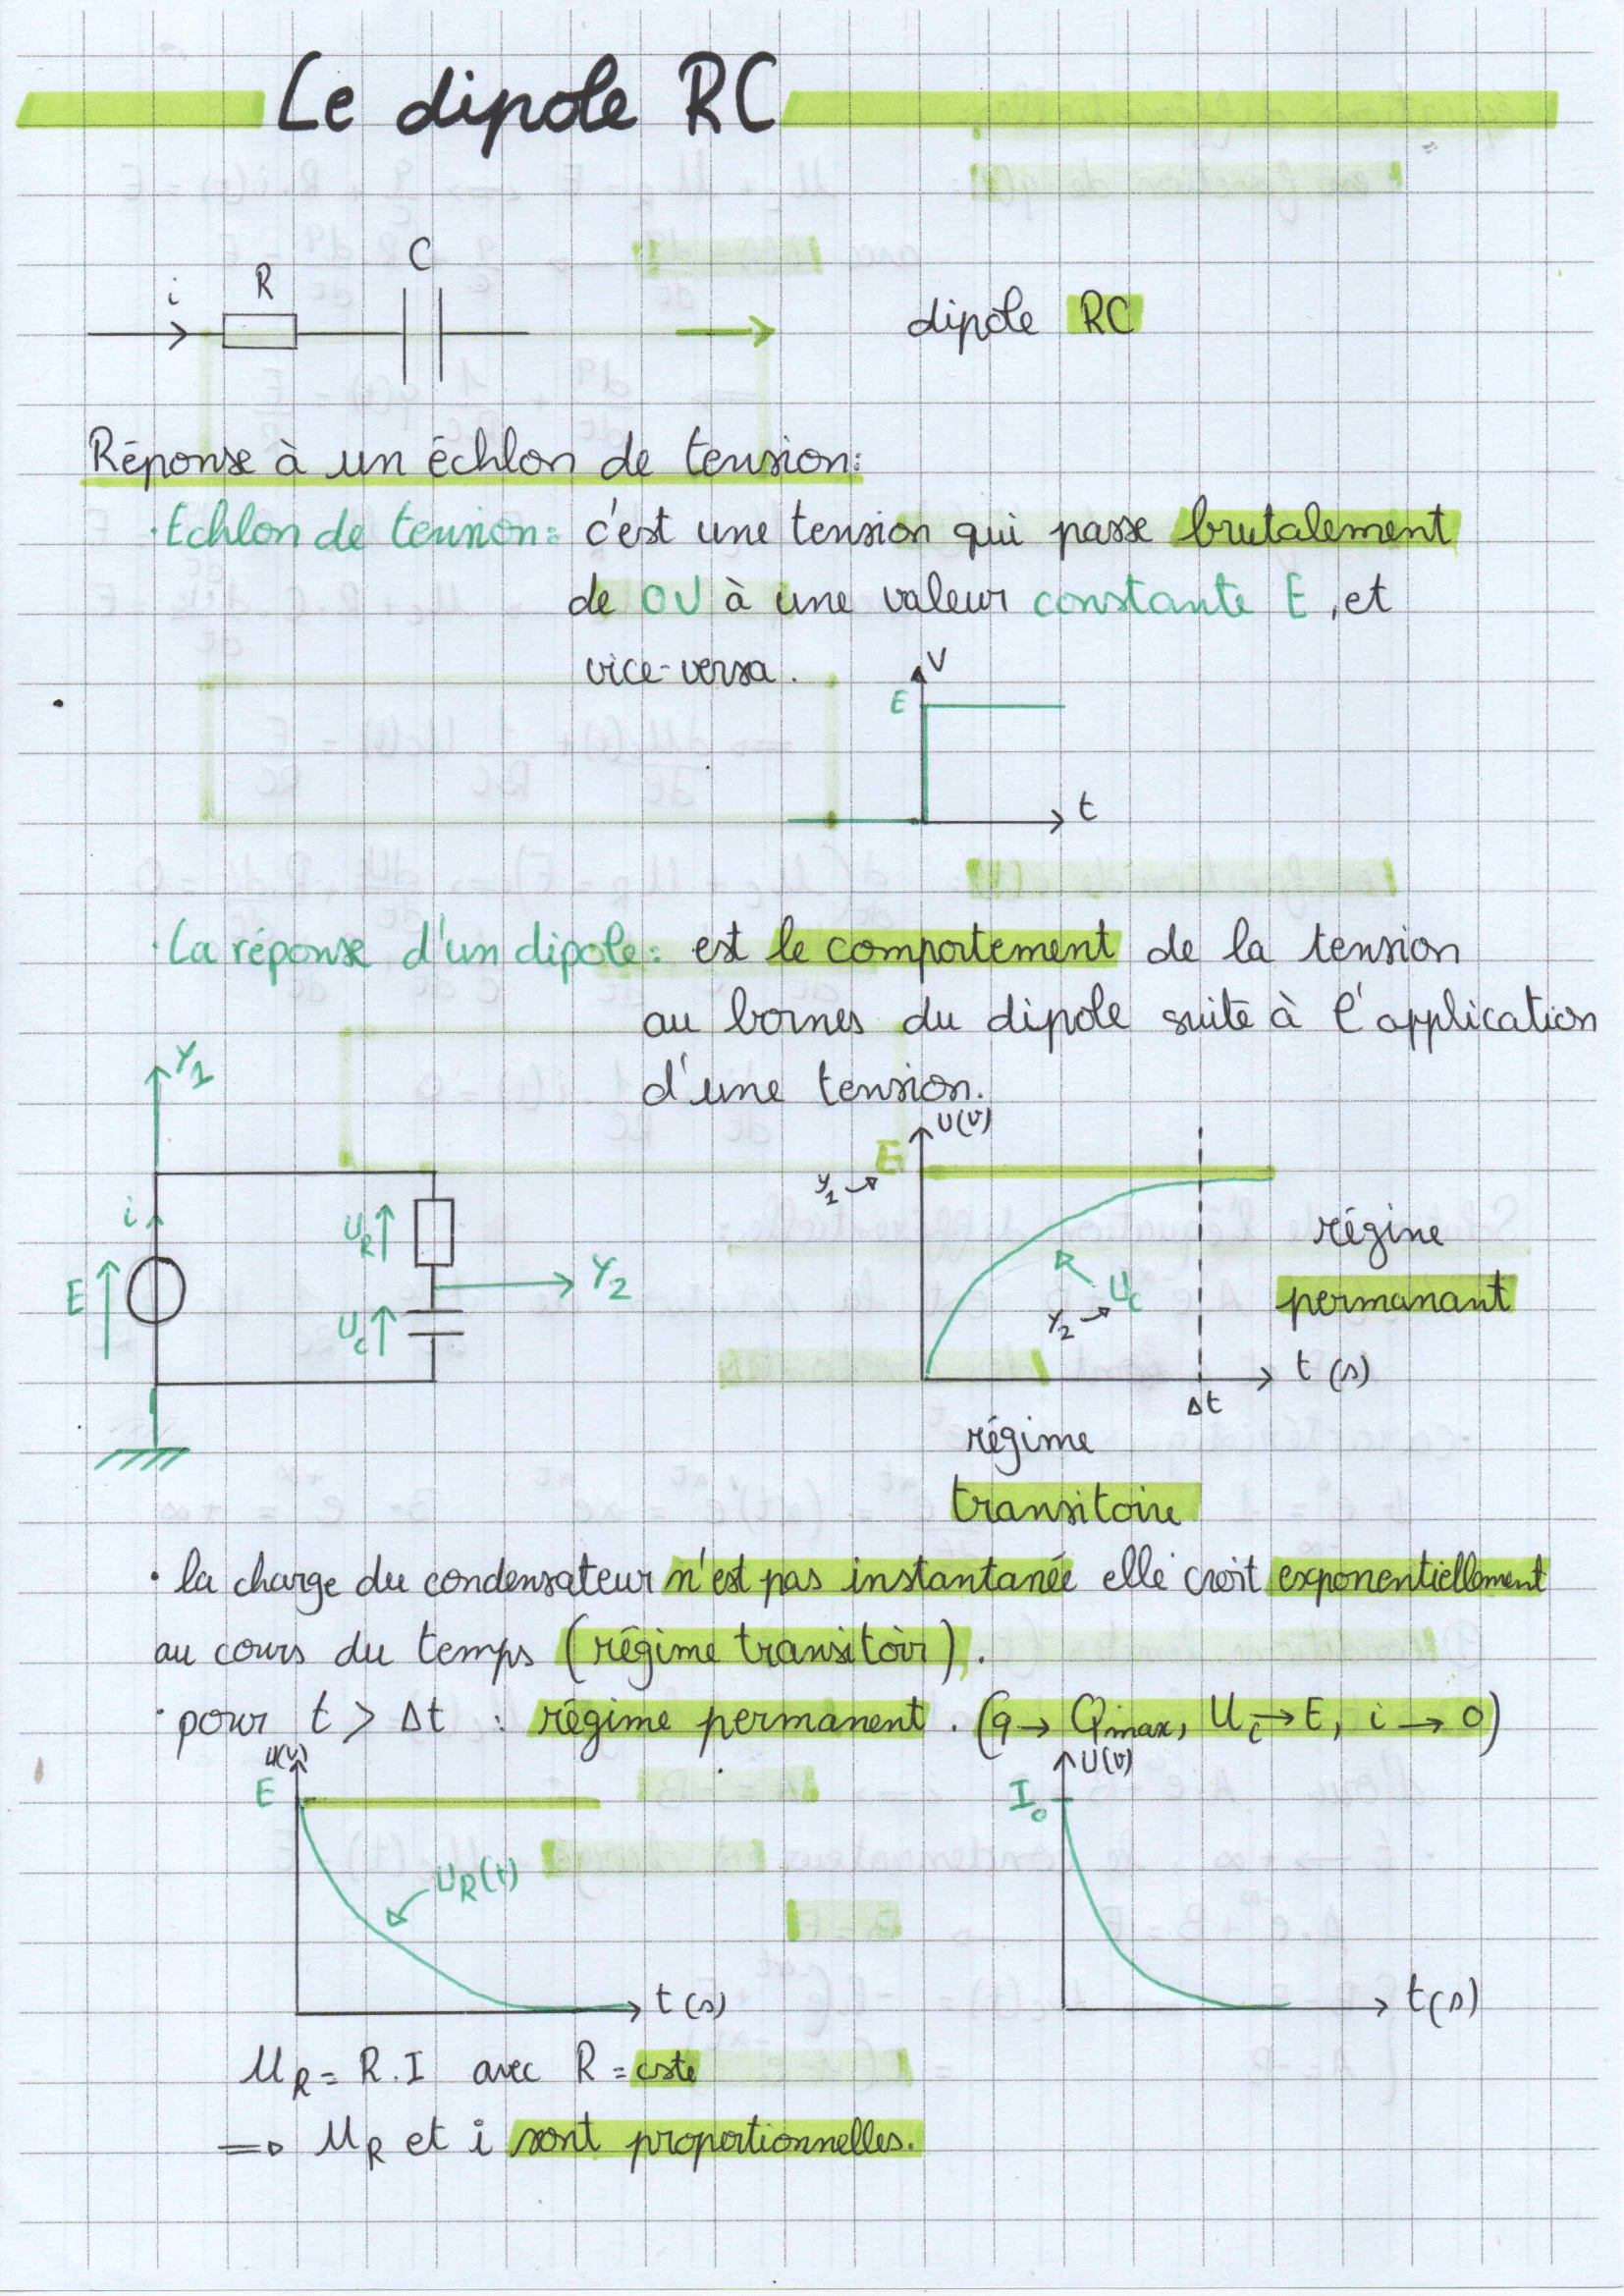 Le dipole RC
i R C
dipôle RC
Réponse à un échlon de tension:
· Echlon de tension: c'est une tension qui passe brutalement
de 0V à une valeur constante E, et
vice-versa.
V
E
t
· La réponse d'un dipole: est le comportement de la tension
au bornes du dipole suite à l'application
d'une tension.
Y1
U(V)
E
Y1
i
UR
régine
E
Y2
permanant
Uc
Uc
Y2
t (s)
Δt
régime
transitoire
· la charge du condensateur n'est pas instantanée elle croit exponentiellement
au cours du temps (régime transitoir).
· pour t > Δt : régime permanent. (q → Qmax, Uc → E, i → 0)
U(V)
U(V)
E
I0
UR(t)
t (s)
t(s)
UR = R.I avec R = cste
=> UR et i sont proportionnelles.